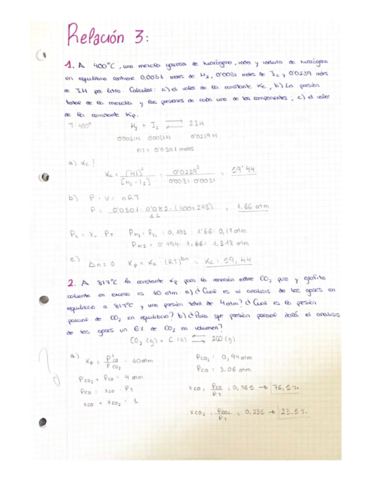 Relación 3:
1. A 400°C, una mezcla gaseosa de hidrógeno, iodo y ioduro de hidrógeno
en equilibrio contiene 0,0031 moles de H₂, 0'0031 moles de I₂ y 0'0239 moles
de IH por litro. Calcular: a) el valor de la constante Kc, b) La presión
total de la mezcla y las presiones de cada uno de los componentes, c) el valor
de la constante Kp.
T 400° H₂ + I₂ ⇄ 2IH
0'0031 0'0031 0'0239
a) Kc?
Kc = [HI]² / [H₂·I₂] = 0'0239² / 0'0031·0'0031 = 59'44
b) P · V = nRT
P = 0'0301 · 0'082 · (400+273) / 1L = 1.66 atm
Pₐ = Xₐ Pₜ
c) Δn = 0 Kp = Kc (RT)^Δn = Kc = 59,44
2. A 817°C la constante Kp para la reacción entre CO₂ puro y grafito
caliente en exceso es 10 atm a) ¿Cuál es el análisis de los gases en
equilibrio a 817°C y una presión total de 4 atm? ¿Cuál es la presión
parcial de CO₂ en equilibrio? b) ¿Para qué presión parcial dará el análisis
de los gases un 6% de CO₂ en volumen?
CO₂ (g) + C (s) ⇄ 2CO (g)
a) Kp = P²CO / PCO₂ = 10 atm PCO₂ = 0,94 atm
PCO₂ + PCO = 4 atm PCO = 3.06 atm
PCO = XCO · Pₜ XCO = PCO / Pₜ = 0,765 → 76,5%
XCO + XCO₂ = 1
XCO₂ = PCO₂ / Pₜ = 0,235 → 23.5%